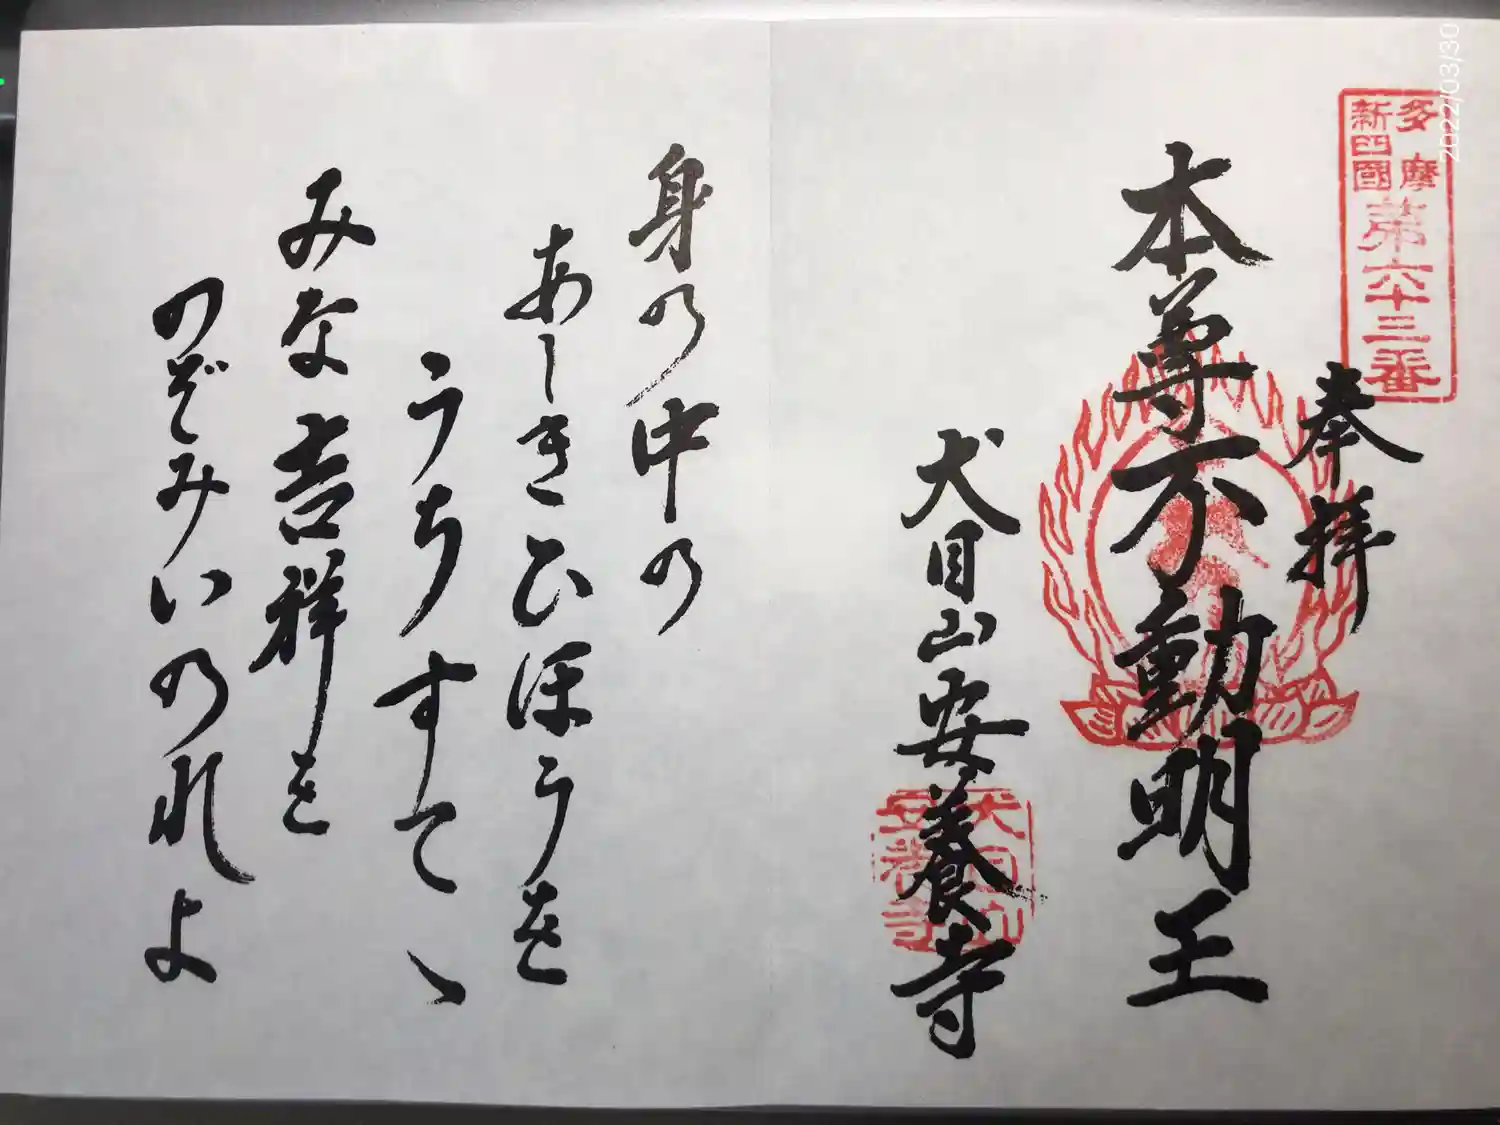 多摩
新四國
第六十三番
奉拝
本尊不動明王
犬目山安養寺
犬目山
安養寺
身の中の
あしきひほうを
うちすてゝ
みな吉祥を
のぞみいのれよ
2022/03/30